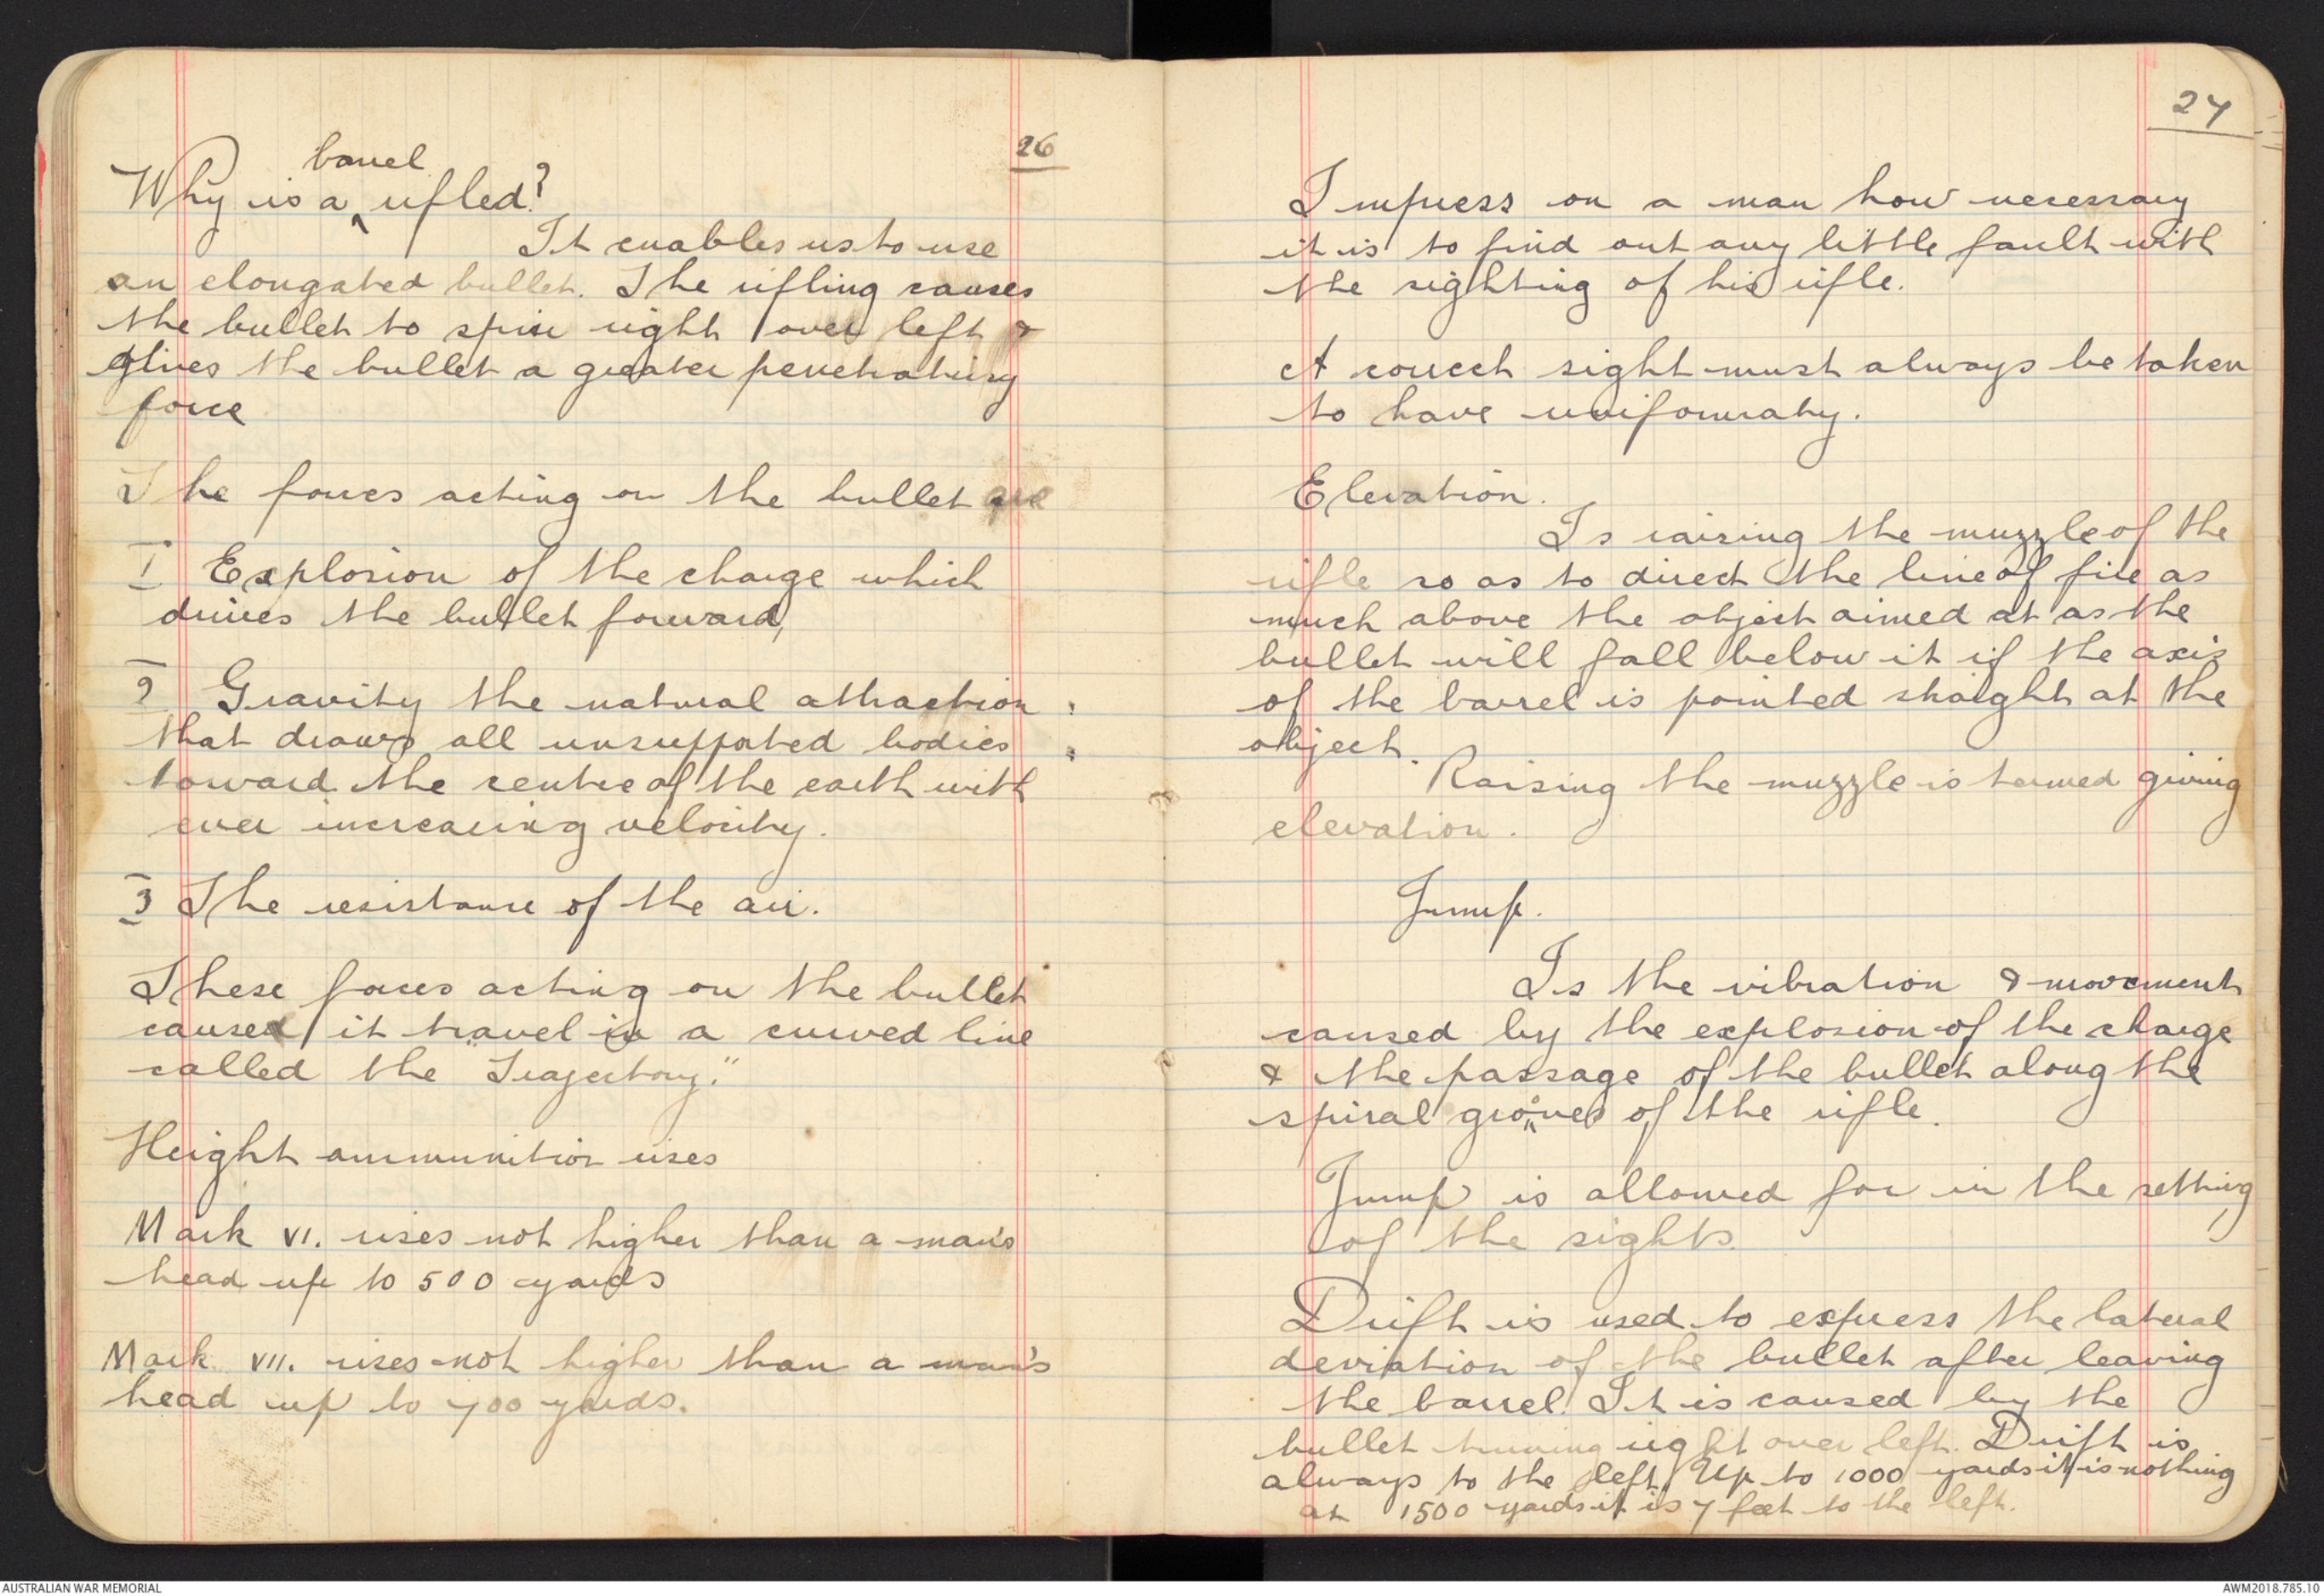 26
Why is a barrel rifled?
It enables us to use
an elongated bullet. The rifling causes
the bullet to spin right over left &
gives the bullet a greater penetrating
force
The forces acting on the bullet are
1 Explosion of the charge which
drives the bullet forward,
2 Gravity the natural attraction
that draws all unsupported bodies
toward the centre of the earth with
ever increasing velocity.
3 The resistance of the air.
These forces acting on the bullet
cause it travel in a curved line
called the "Trajectory."
Height ammunition rises
Mark VI. rises not higher than a man's
head up to 500 yards
Mark VII. rises not higher than a man's
head up to 700 yards.
27
Impress on a man how necessary
it is to find out any little fault with
the sighting of his rifle.
A correct sight must always be taken
to have uniformaty.
Elevation.
Is raising the muzzle of the
rifle so as to direct the line of fire as
much above the object aimed at as the
bullet will fall below it if the axis
of the barrel is pointed straight at the
object.
Raising the muzzle is termed giving
elevation.
Jump.
Is the vibration & movement
caused by the explosion of the charge
& the passage of the bullet along the
spiral grooves of the rifle.
Jump is allowed for in the setting
of the sights.
Drift is used to express the lateral
deviation of the bullet after leaving
the barrel. It is caused by the
bullet turning right over left. Drift is
always to the left. Up to 1000 yards it is nothing
at 1500 yards it is 7 feet to the left.
AUSTRALIAN WAR MEMORIAL
AWM2018.785.10